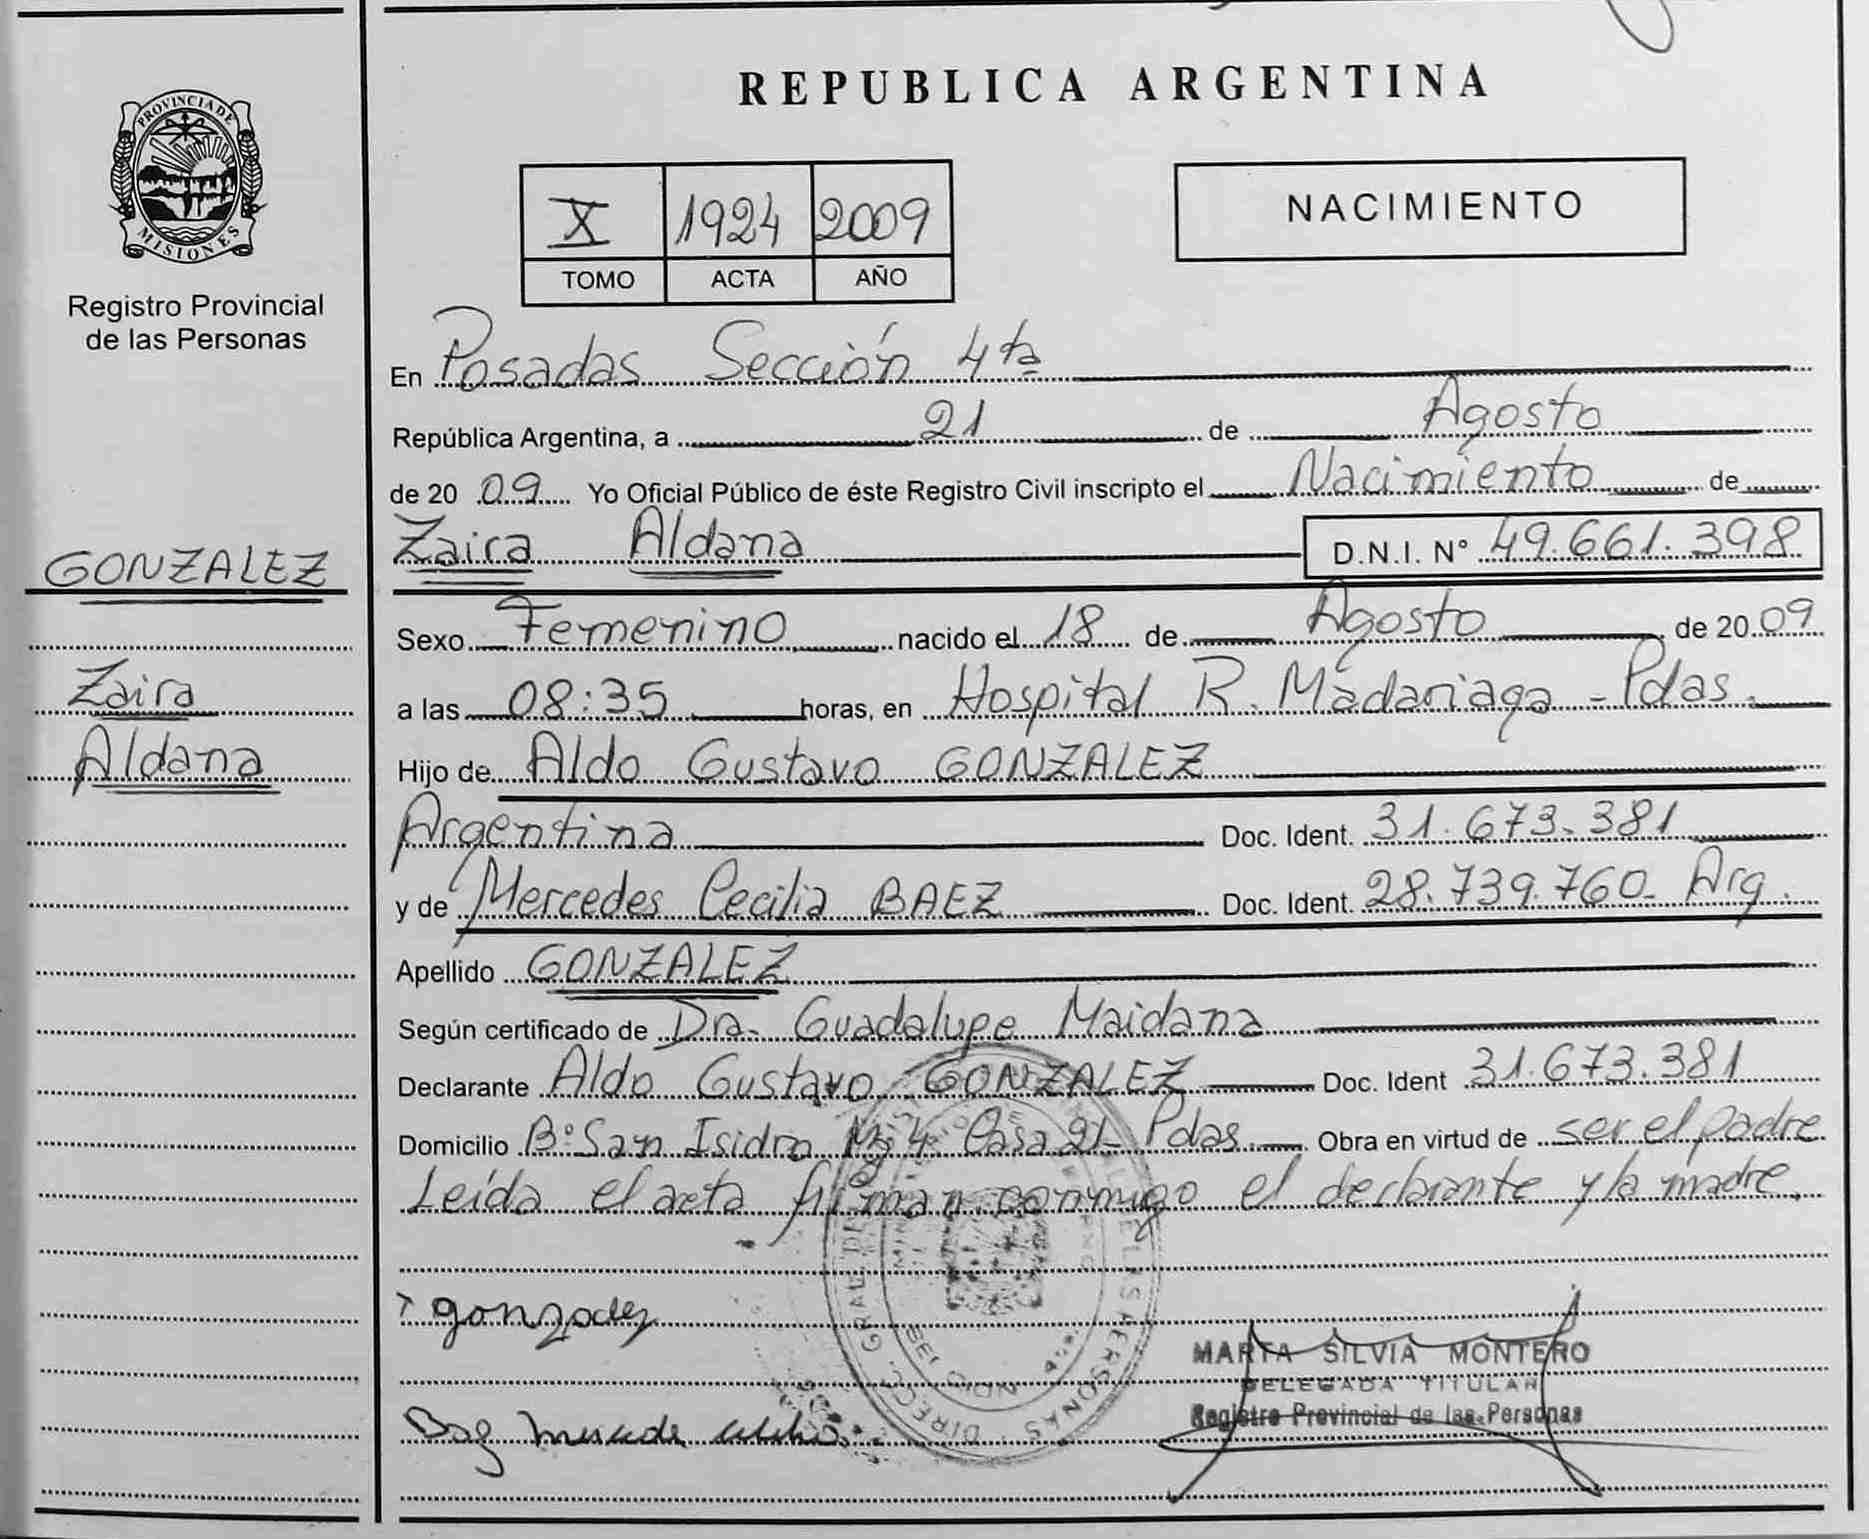 PROVINCIA DE
MISIONES
Registro Provincial
de las Personas
GONZALEZ
Zaira
Aldana
REPUBLICA ARGENTINA
X 1924 2009
TOMO ACTA AÑO
NACIMIENTO
En Posadas Sección 4ta
República Argentina, a 21 de Agosto
de 2009 Yo Oficial Público de éste Registro Civil inscripto el Nacimiento de
Zaira Aldana D.N.I. N° 49.661.398
Sexo Femenino nacido el 18 de Agosto de 2009
a las 08:35 horas, en Hospital R. Madariaga - Pdas.
Hijo de Aldo Gustavo GONZALEZ
Argentina Doc. Ident. 31.673.381
y de Mercedes Cecilia BAEZ Doc. Ident. 28.739.760- Arg.
Apellido GONZALEZ
Según certificado de Dra. Guadalupe Maidana
Declarante Aldo Gustavo GONZALEZ Doc. Ident 31.673.381
Domicilio B° San Isidro Mz 4 Casa 21- Pdas. Obra en virtud de ser el padre
Leída el acta firman conmigo el declarante y la madre.
gonzalez
MARTA SILVIA MONTERO
DELEGADA TITULAR
Registro Provincial de las Personas